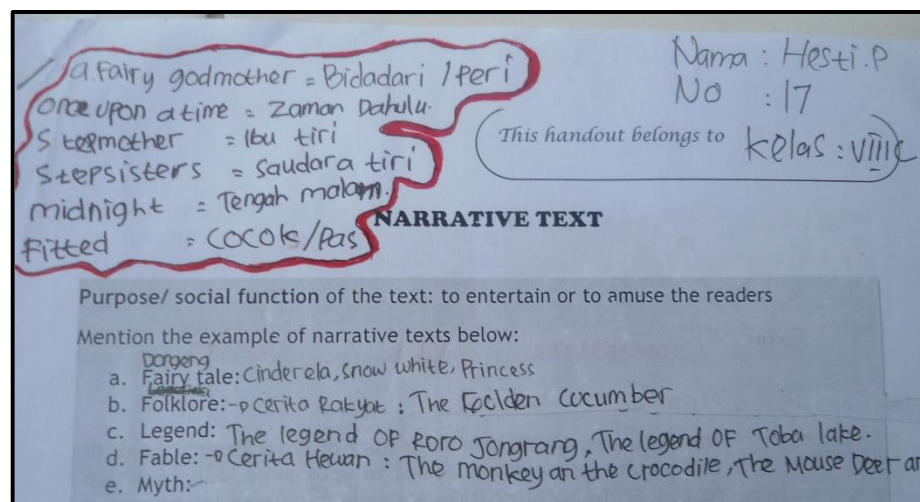 a fairy godmother = Bidadari / peri
once upon a time = Zaman Dahulu.
Stepmother = Ibu tiri
Stepsisters = Saudara tiri
midnight = Tengah malam.
Fitted = cocok/Pas
Nama : Hesti.P
No : 17
This handout belongs to kelas : VIII C
NARRATIVE TEXT
Purpose/ social function of the text: to entertain or to amuse the readers
Mention the example of narrative texts below:
Dongeng
a. Fairy tale: Cinderela, snow white, Princess
b. Folklore: cerita Rakyat : The Goclden cucumber
c. Legend: The legend OF Roro Jongrang, The legend OF Toba lake.
d. Fable: Cerita Hewan : The monkey an the crocodile, The Mouse Deer an
e. Myth: